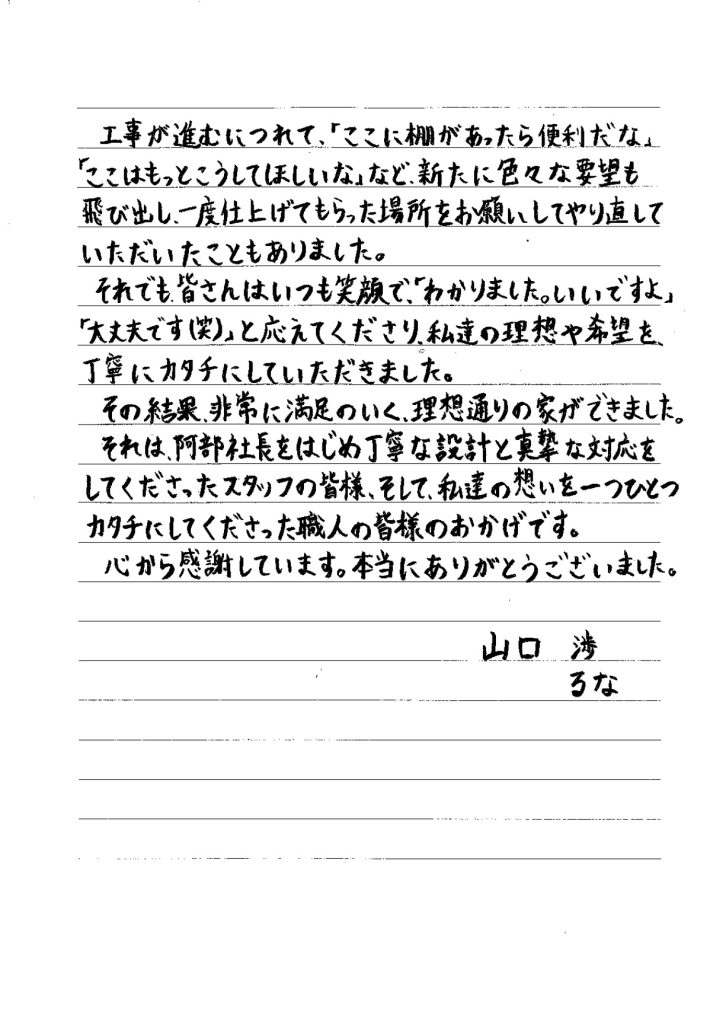 工事が進むにつれて、「ここに棚があったら便利だな」
「ここはもっとこうしてほしいな」など、新たに色々な要望も
飛び出し、一度仕上げてもらった場所をお願いしてやり直して
いただいたこともありました。
それでも、皆さんはいつも笑顔で、「わかりました。いいですよ」
「大丈夫です(笑)」と応えてくださり、私達の理想や希望を、
丁寧にカタチにしていただきました。
その結果、非常に満足のいく、理想通りの家ができました。
それは、阿部社長をはじめ丁寧な設計と真摯な対応を
してくださったスタッフの皆様、そして、私達の想いを一つひとつ
カタチにしてくださった職人の皆様のおかげです。
心から感謝しています。本当にありがとうございました。
山口 渉
るな